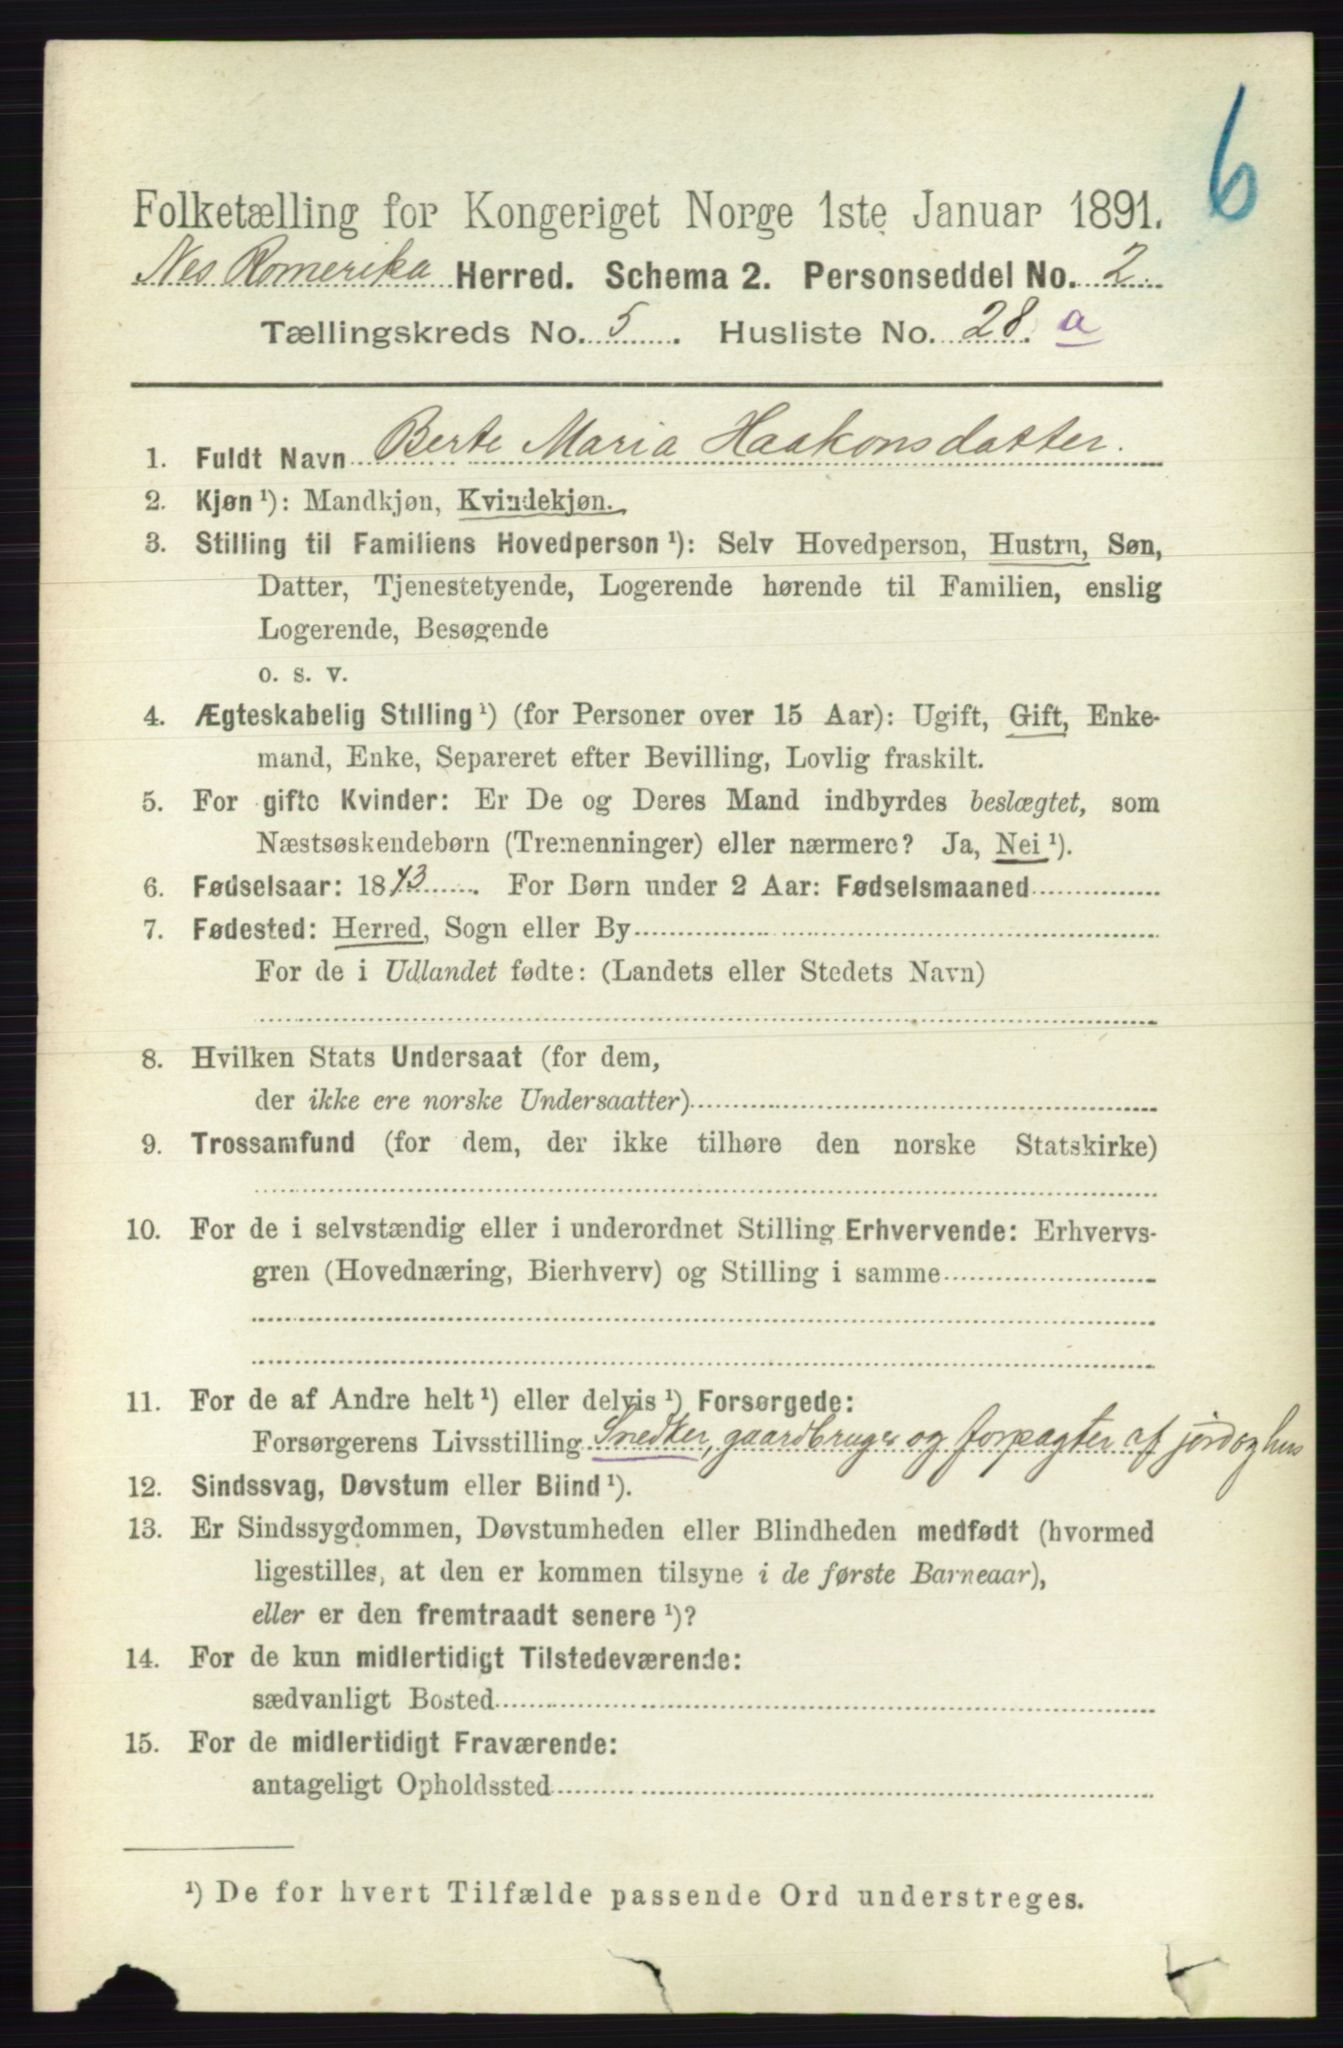 6
Folketælling for Kongeriget Norge 1ste Januar 1891.
Nes Romerike Herred. Schema 2. Personseddel No. 2
Tællingskreds No. 5. Husliste No. 28. a
1. Fuldt Navn Berte Maria Haakonsdatter.
2. Kjøn¹): Mandkjøn, Kvindekjøn.
3. Stilling til Familiens Hovedperson¹): Selv Hovedperson, Hustru, Søn,
Datter, Tjenestetyende, Logerende hørende til Familien, enslig
Logerende, Besøgende
o. s. v.
4. Ægteskabelig Stilling¹) (for Personer over 15 Aar): Ugift, Gift, Enke-
mand, Enke, Separeret efter Bevilling, Lovlig fraskilt.
5. For gifte Kvinder: Er De og Deres Mand indbyrdes beslægtet, som
Næstsøskendebørn (Tremenninger) eller nærmere? Ja, Nei¹).
6. Fødselsaar: 1843. For Børn under 2 Aar: Fødselsmaaned
7. Fødested: Herred, Sogn eller By
For de i Udlandet fødte: (Landets eller Stedets Navn)
8. Hvilken Stats Undersaat (for dem,
der ikke ere norske Undersaatter)
9. Trossamfund (for dem, der ikke tilhøre den norske Statskirke)
10. For de i selvstændig eller i underordnet Stilling Erhvervende: Erhvervs-
gren (Hovednæring, Bierhverv) og Stilling i samme
11. For de af Andre helt¹) eller delvis¹) Forsørgede:
Forsørgerens Livsstilling Snedker, gaardbruger og forpagter af jord og hus
12. Sindssvag, Døvstum eller Blind¹).
13. Er Sindssygdommen, Døvstumheden eller Blindheden medfødt (hvormed
ligestilles, at den er kommen tilsyne i de første Barneaar),
eller er den fremtraadt senere¹)?
14. For de kun midlertidigt Tilstedeværende:
sædvanligt Bosted
15. For de midlertidigt Fraværende:
antageligt Opholdssted
¹) De for hvert Tilfælde passende Ord understreges.